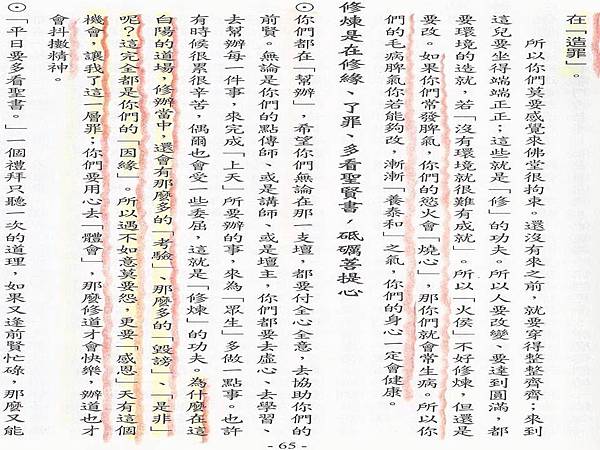 在「造罪」。
所以你們莫要感覺來佛堂很拘束。還沒有來之前，就要穿得整整齊齊；來到
這兒要坐得端端正正；這些就是「修」的功夫。所以人要改變、要達到圓滿，都
要環境的造就，若「沒有環境就很難有成就」。所以「火侯」不好修煉，但還是
要改。如果你們常發脾氣，你們的慾火會「燒心」，那你們就會常生病。所以你
們的毛病脾氣你若能夠改，漸漸「養泰和」之氣，你們的身心一定會健康。
修煉是在修緣、了罪、多看聖賢書，砥礪菩提心
⊙你們都在「幫辦」，希望你們無論在那一支壇，都要付全心全意，去協助你們的
前賢。無論是你們的點傳師、或是講師、或是壇主，你們都要去虛心、去學習、
去幫辦每一件事，來完成「上天」所要辦的事，來為「眾生」多做一點事。也許
有時候很累很辛苦，偶爾也會受一些委屈，這就是「修煉」的功夫。為什麼在這
白陽的道場，是修辦當中，還會有那麼多的「考驗」、那麼多的「毀謗」、「是非」
呢？這完全都是你們的「因緣」。所以遇不如意莫要怨，更要「感恩」天有這個
機會，讓我了這一層罪；你們要用心去「體會」，那麼修道才會快樂，辦道也才
會抖擻精神。
⊙「平日要多看聖書。」一個禮拜只聽一次的道理，如果又逢前賢忙碌，那麼又能
- 65 -